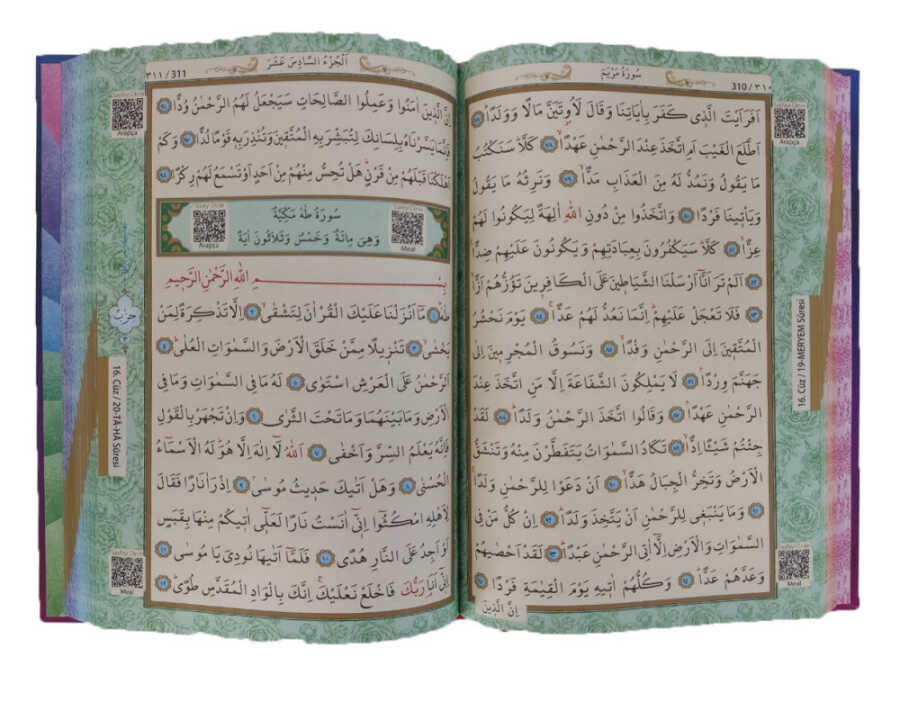 سُورَةُ مَرْيَمَ
310 / ٣١٠
اَفَرَاَيْتَ الَّذ۪ي كَفَرَ بِاٰيَاتِنَا وَقَالَ لَاُو۫تَيَنَّ مَالًا وَوَلَدًاۜ ﴿٧٧﴾
اَطَّلَعَ الْغَيْبَ اَمِ اتَّخَذَ عِنْدَ الرَّحْمٰنِ عَهْدًاۙ ﴿٧٨﴾ كَلَّاۜ سَنَكْتُبُ
مَا يَقُولُ وَنَمُدُّ لَهُ مِنَ الْعَذَابِ مَدًّاۙ ﴿٧٩﴾ وَنَرِثُهُ مَا يَقُولُ
وَيَأْت۪ينَا فَرْدًا ﴿٨٠﴾ وَاتَّخَذُوا مِنْ دُونِ اللّٰهِ اٰلِهَةً لِيَكُونُوا لَهُمْ
عِزًّاۙ ﴿٨١﴾ كَلَّاۜ سَيَكْفُرُونَ بِعِبَادَتِهِمْ وَيَكُونُونَ عَلَيْهِمْ ضِدًّا۟
﴿٨٢﴾ اَلَمْ تَرَ اَنَّٓا اَرْسَلْنَا الشَّيَاط۪ينَ عَلَى الْكَافِر۪ينَ تَؤُزُّهُمْ اَزًّاۙ
﴿٨٣﴾ فَلَا تَعْجَلْ عَلَيْهِمْۜ اِنَّمَا نَعُدُّ لَهُمْ عَدًّاۚ ﴿٨٤﴾ يَوْمَ نَحْشُرُ
الْمُتَّق۪ينَ اِلَى الرَّحْمٰنِ وَفْدًاۙ ﴿٨٥﴾ وَنَسُوقُ الْمُجْرِم۪ينَ اِلٰى
جَهَنَّمَ وِرْدًاۢ ﴿٨٦﴾ لَا يَمْلِكُونَ الشَّفَاعَةَ اِلَّا مَنِ اتَّخَذَ عِنْدَ
الرَّحْمٰنِ عَهْدًاۢ ﴿٨٧﴾ وَقَالُوا اتَّخَذَ الرَّحْمٰنُ وَلَدًاۜ ﴿٨٨﴾ لَقَدْ
جِئْتُمْ شَيْـًٔا اِدًّاۙ ﴿٨٩﴾ تَكَادُ السَّمٰوَاتُ يَتَفَطَّرْنَ مِنْهُ وَتَنْشَقُّ
الْاَرْضُ وَتَخِرُّ الْجِبَالُ هَدًّاۙ ﴿٩٠﴾ اَنْ دَعَوْا لِلرَّحْمٰنِ وَلَدًاۚ
﴿٩١﴾ وَمَا يَنْبَغ۪ي لِلرَّحْمٰنِ اَنْ يَتَّخِذَ وَلَدًاۜ ﴿٩٢﴾ اِنْ كُلُّ مَنْ فِي
السَّمٰوَاتِ وَالْاَرْضِ اِلَّٓا اٰتِي الرَّحْمٰنِ عَبْدًاۜ ﴿٩٣﴾ لَقَدْ اَحْصٰيهُمْ
وَعَدَّهُمْ عَدًّاۜ ﴿٩٤﴾ وَكُلُّهُمْ اٰت۪يهِ يَوْمَ الْقِيٰمَةِ فَرْدًا ﴿٩٥﴾
اِنَّ الَّذ۪ينَ
Arapça
Meal
16. Cüz / 19-MERYEM Sûresi
اَلْجُزْءُ السَّادِسَ عَشَرَ
٣١١ / 311
اِنَّ الَّذ۪ينَ اٰمَنُوا وَعَمِلُوا الصَّالِحَاتِ سَيَجْعَلُ لَهُمُ الرَّحْمٰنُ وُدًّا ﴿٩٦﴾
فَاِنَّمَا يَسَّرْنَاهُ بِلِسَانِكَ لِتُبَشِّرَ بِهِ الْمُتَّق۪ينَ وَتُنْذِرَ بِه۪ قَوْمًا لُدًّا ﴿٩٧﴾ وَكَمْ
اَهْلَكْنَا قَبْلَهُمْ مِنْ قَرْنٍۜ هَلْ تُحِسُّ مِنْهُمْ مِنْ اَحَدٍ اَوْ تَسْمَعُ لَهُمْ رِكْزًا ﴿٩٨﴾
سُورَةُ طٰهٰ مَكِّيَّةٌ
وَهِيَ مِائَةٌ وَخَمْسٌ وَثَلَاثُونَ اٰيَةً
Arapça
Meal
بِسْمِ اللّٰهِ الرَّحْمٰنِ الرَّح۪يمِ
طٰهٰۜ ﴿١﴾ مَٓا اَنْزَلْنَا عَلَيْكَ الْقُرْاٰنَ لِتَشْقٰىۙ ﴿٢﴾ اِلَّا تَذْكِرَةً لِمَنْ
يَخْشٰىۙ ﴿٣﴾ تَنْز۪يلًا مِمَّنْ خَلَقَ الْاَرْضَ وَالسَّمٰوَاتِ الْعُلٰىۜ ﴿٤﴾
اَلرَّحْمٰنُ عَلَى الْعَرْشِ اسْتَوٰى ﴿٥﴾ لَهُ مَا فِي السَّمٰوَاتِ وَمَا فِي
الْاَرْضِ وَمَا بَيْنَهُمَا وَمَا تَحْتَ الثَّرٰى ﴿٦﴾ وَاِنْ تَجْهَرْ بِالْقَوْلِ
فَاِنَّهُ يَعْلَمُ السِّرَّ وَاَخْفٰى ﴿٧﴾ اَللّٰهُ لَٓا اِلٰهَ اِلَّا هُوَۜ لَهُ الْاَسْمَٓاءُ
الْحُسْنٰى ﴿٨﴾ وَهَلْ اَتٰيكَ حَد۪يثُ مُوسٰىۢ ﴿٩﴾ اِذْ رَاٰ نَارًا فَقَالَ
لِاَهْلِهِ امْكُثُٓوا اِنّ۪ٓي اٰنَسْتُ نَارًا لَعَلّ۪ٓي اٰت۪يكُمْ مِنْهَا بِقَبَسٍ
اَوْ اَجِدُ عَلَى النَّارِ هُدًى ﴿١٠﴾ فَلَمَّٓا اَتٰيهَا نُودِيَ يَا مُوسٰى ﴿١١﴾
اِنّ۪ٓي اَنَا۬ رَبُّكَ فَاخْلَعْ نَعْلَيْكَۚ اِنَّكَ بِالْوَادِ الْمُقَدَّسِ طُوًىۜ ﴿١٢﴾
Arapça
حزب
16. Cüz / 20-TÂ-HÂ Sûresi
Meal